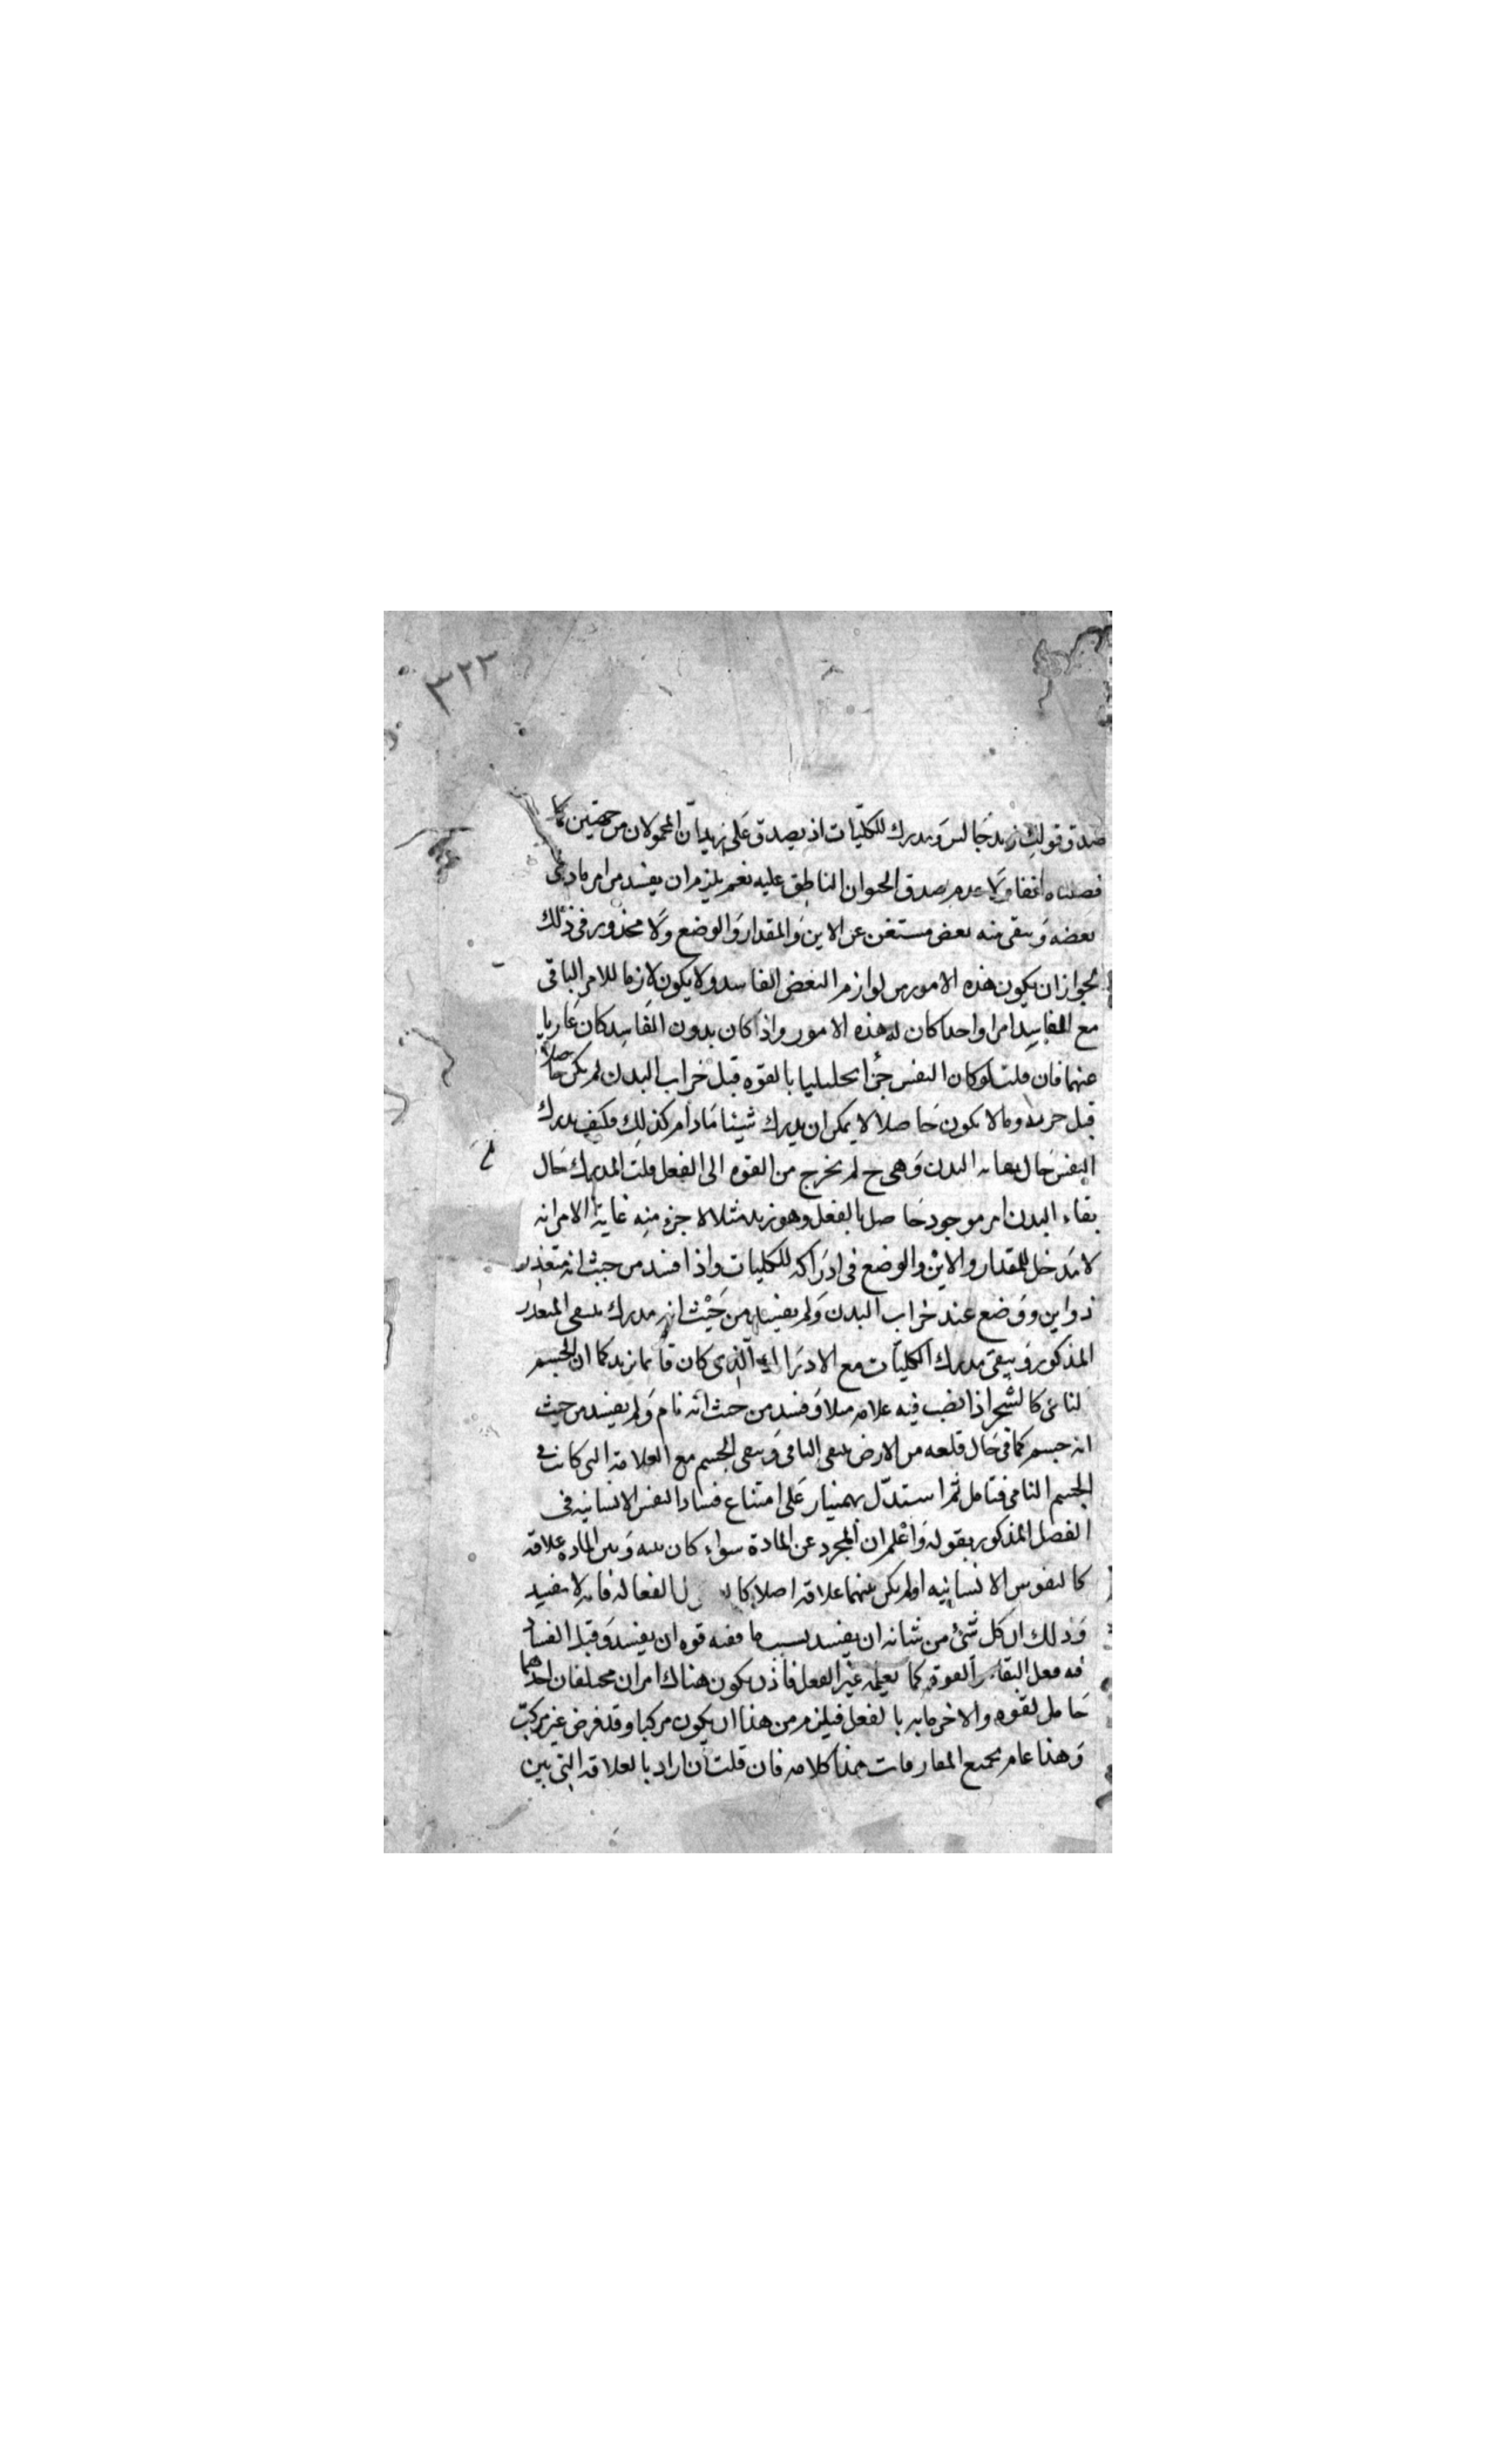 ٣٢٣
صدق قولك زيد جالس ومدرك للكليات اذ يصدق على زيد ان المحمولان من جهتين كما
فصلناه انفا ولا عدم صدق الحيوان الناطق عليه نعم يلزم ان يفسد من امر مادى
بعضه ويبقى منه بعض مستغن عن الاين والمقدار والوضع ولا محذور فى ذلك
لجواز ان يكون هذه الامور من لوازم البعض الفاسد ولا يكون لازما للامر الباقى
مع الفاسد امرا واحدا كان له هذه الامور واذا كان بدون الفاسد كان عاريا
عنهما فان قلت لو كان النفس جزأ تحليليا بالقوه قبل خراب البدن لم يكن حاصلا
قبل وما لا يكون حاصلا لا يمكن ان يدرك شيئا مادام كذلك فكيف يدرك
النفس حال بقاء البدن وهى ح لم يخرج من القوه الى الفعل قلت المدرك حال
بقاء البدن امر موجود حاصل بالفعل وهو زيد مثلا لا جزء منه غاية الامر انه
لا مدخل للمقدار والاين والوضع فى ادراكه للكليات واذا فسد من حيث انه متقدر
ذو اين ووضع عند خراب البدن ولم يفسد من حيث انه مدرك ينتفى المتقدر
المذكور ويبقى مدرك الكليات مع الادراك الذى كان قائما بزيد كما ان الجسم
النامى كالشجر اذا نصب فيه علامه مثلا وفسد من حيث انه نام ولم يفسد من حيث
انه جسم كما فى حال قلعه من الارض ينتفى النامى ويبقى الجسم مع العلامة التى كانت فى
الجسم النامى فتامل ثم استدل بهمنيار على امتناع فساد النفس الانسانيه فى
الفصل المذكور بقوله واعلم ان المجرد عن المادة سواء كان بينه وبين الماده علاقه
كالنفوس الانسانيه اولم يكن بينهما علاقه اصلا الفعاله فانه لا يفسد
وذلك ان كل شئ من شانه ان يفسد بسبب ما ففيه قوه ان يفسد وقبل الفساد
فيه فعل البقاء القوة كما غير الفعل فاذن يكون هناك امران مختلفان احدهما
حامل لقوه والاخر ما به بالفعل فيلزم من هذا ان يكون مركبا وقد فرض غير مركب
وهذا عام لجميع المفارقات هذا كلامه فان قلت ان اراد بالعلاقه التى بين